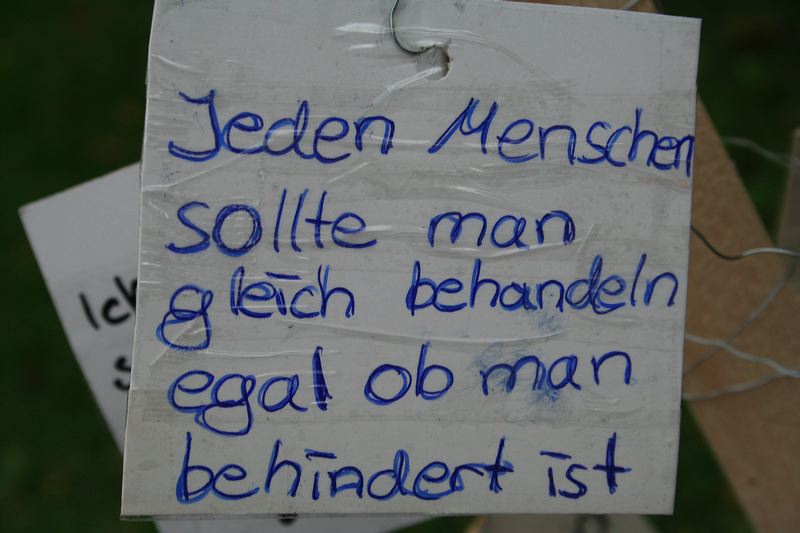 Jeden Menschen
sollte man
gleich behandeln
egal ob man
behindert ist
Ich
s